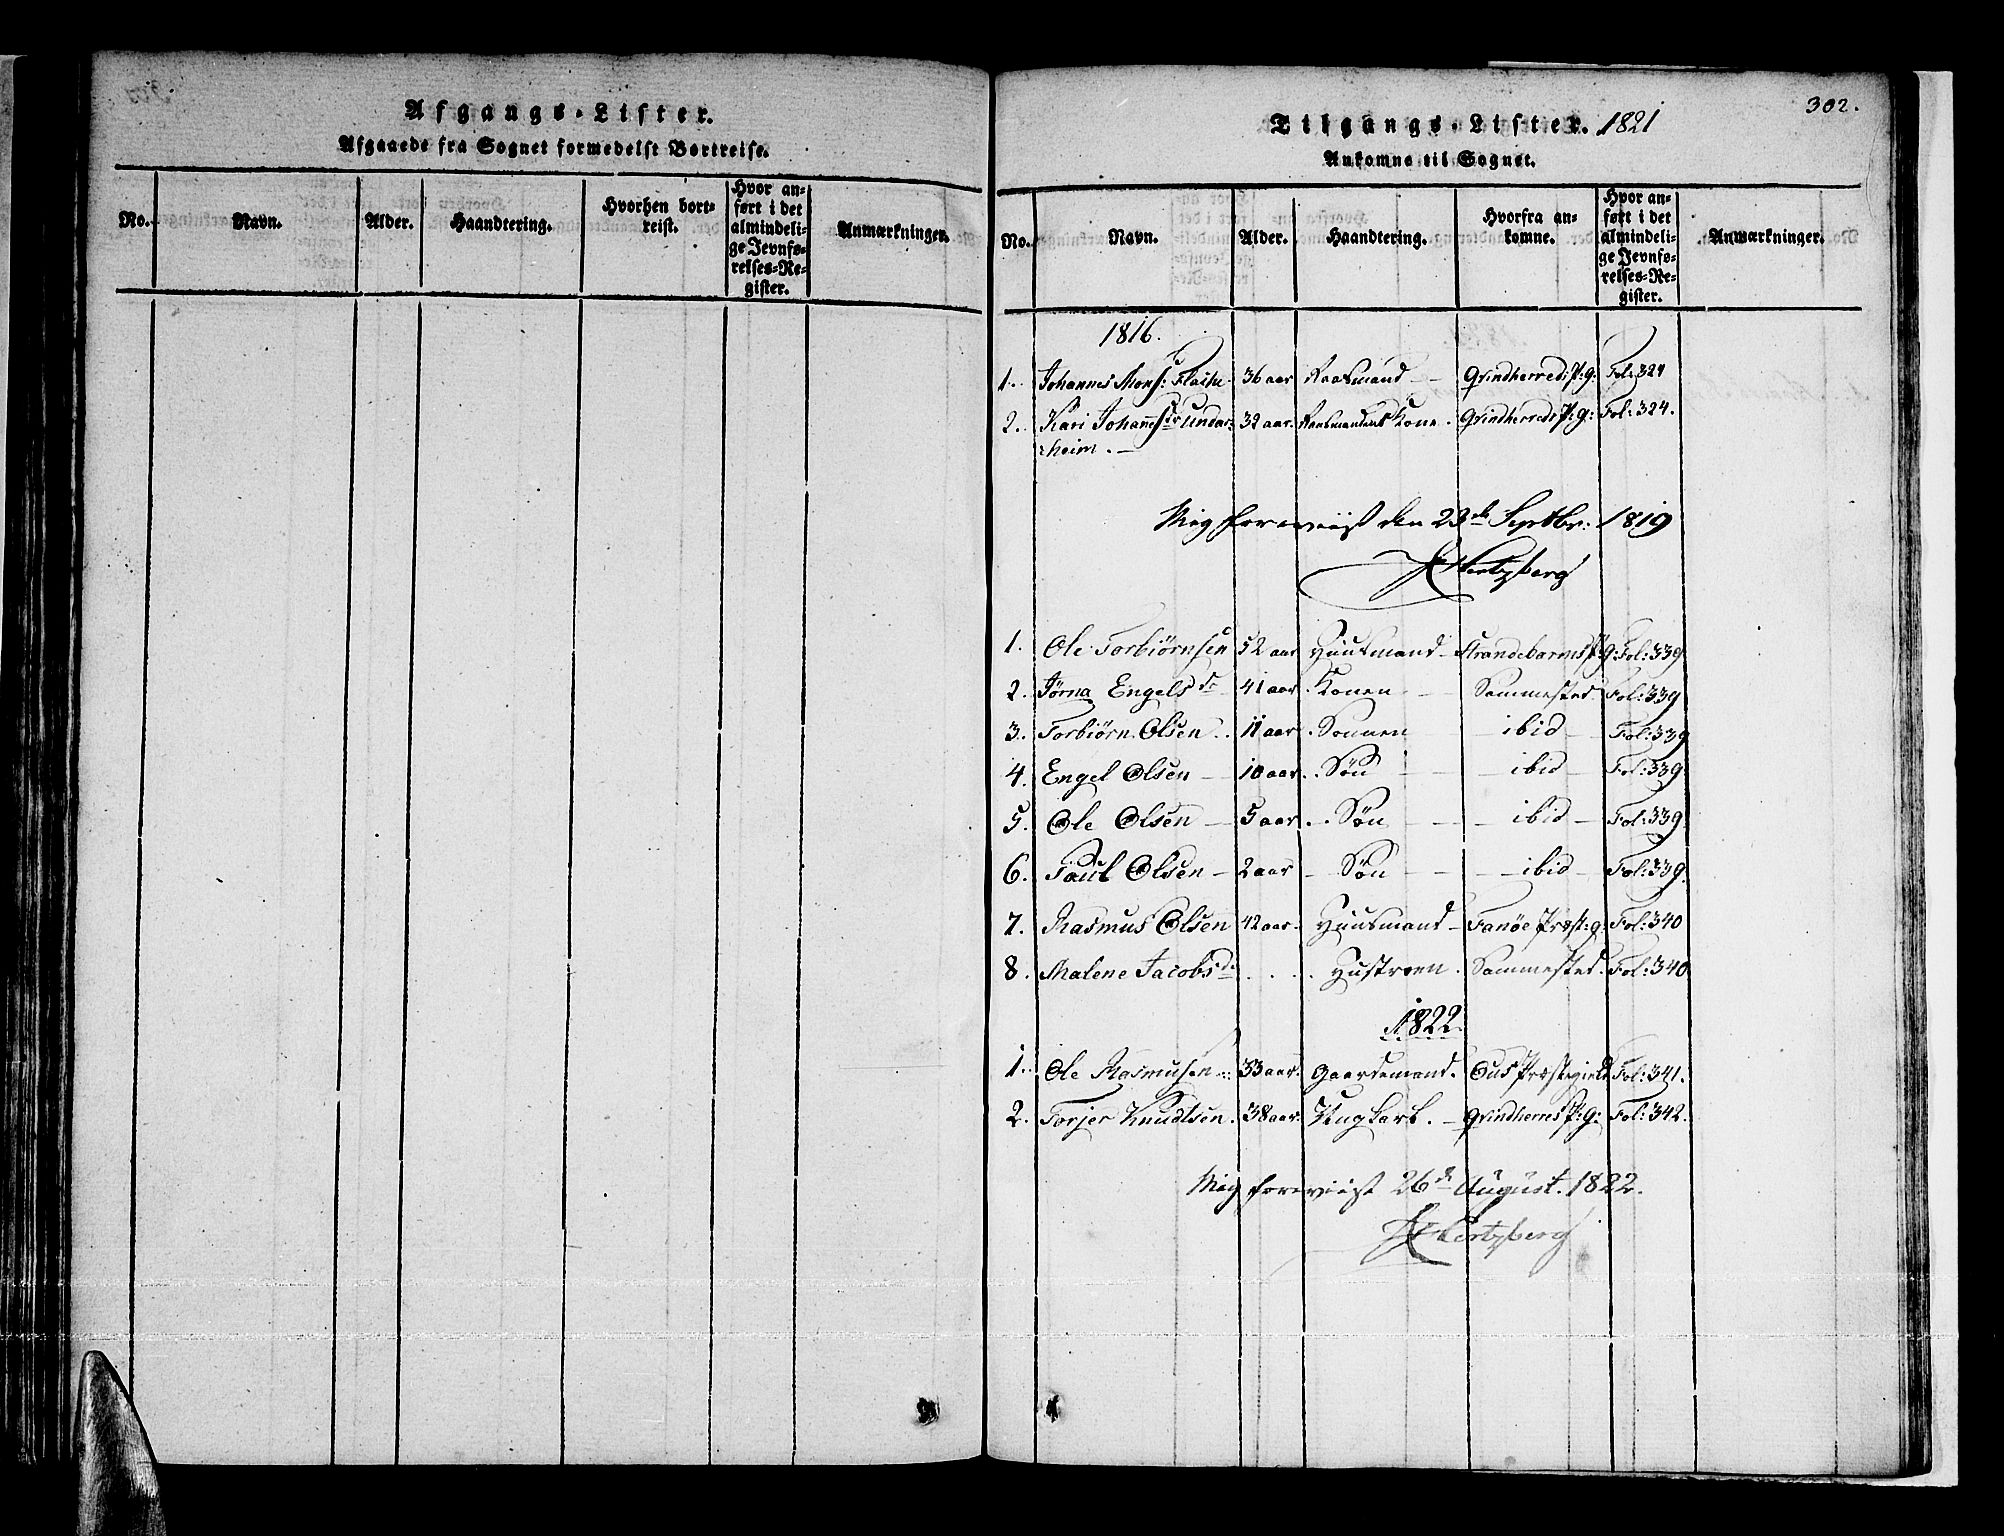 Afgangs-Lister.
Afgaaede fra Sognet formedelst Bortreise.
No. Navn. Alder. Haandtering. Hvorhen bort-
reist. Hvor an-
ført i det
almindeli-
ge Jevnfø-
relses-Re-
gister. Anmærkninger.
302.
Tilgangs-Lister. 1821
Ankomne til Sognet.
No. Navn. Alder. Haandtering. Hvorfra an-
komne. Hvor an-
ført i det
almindeli-
ge Jevnfø-
relses-Re-
gister. Anmærkninger.
1816.
1. Johannes Mons: 36 aar Qvindherreds P:g: Fol: 324
2. Kari Johannesdr Undar= 32 aar. Kone. Qvindherreds P:g: Fol: 324.
=heim.
Mig foreviist den 23de Septbr: 1819
Hertzberg
1. Ole Torbiørnsen 52 aar Huusmand Strandebarms P:g: Fol: 339
2. Jørna Engelsdr 41 aar. Konen Sammested. Fol: 339
3. Torbiørn Olsen 11 aar. Sønnen ibid Fol: 339
4. Engel Olsen 10 aar. Søn ibid Fol: 339
5. Ole Olsen 5 aar. Søn ibid Fol: 339.
6. Paul Olsen 2 aar Søn ibid Fol: 339.
7. Rasmus Olsen 42 aar. Huusmand Fanöe Præst:g: Fol: 340
8. Malene Jacobsdr Hustroen. Sammested. Fol: 340
1822.
1. Ole Rasmusen 33 aar. Gaardemand. Ous Præstegield Fol: 341.
2. Torjer Knudtsen. 38 aar. Ungkarl. Qvindherres P:g: Fol: 342.
Mig foreviist 26de August. 1822.
Hertzberg